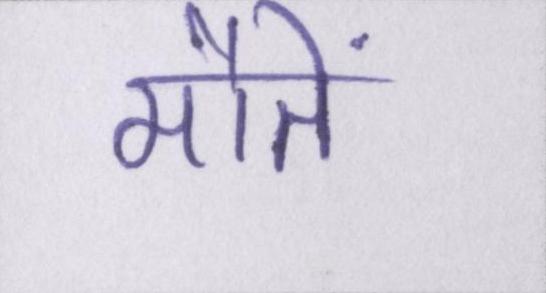 मौतें